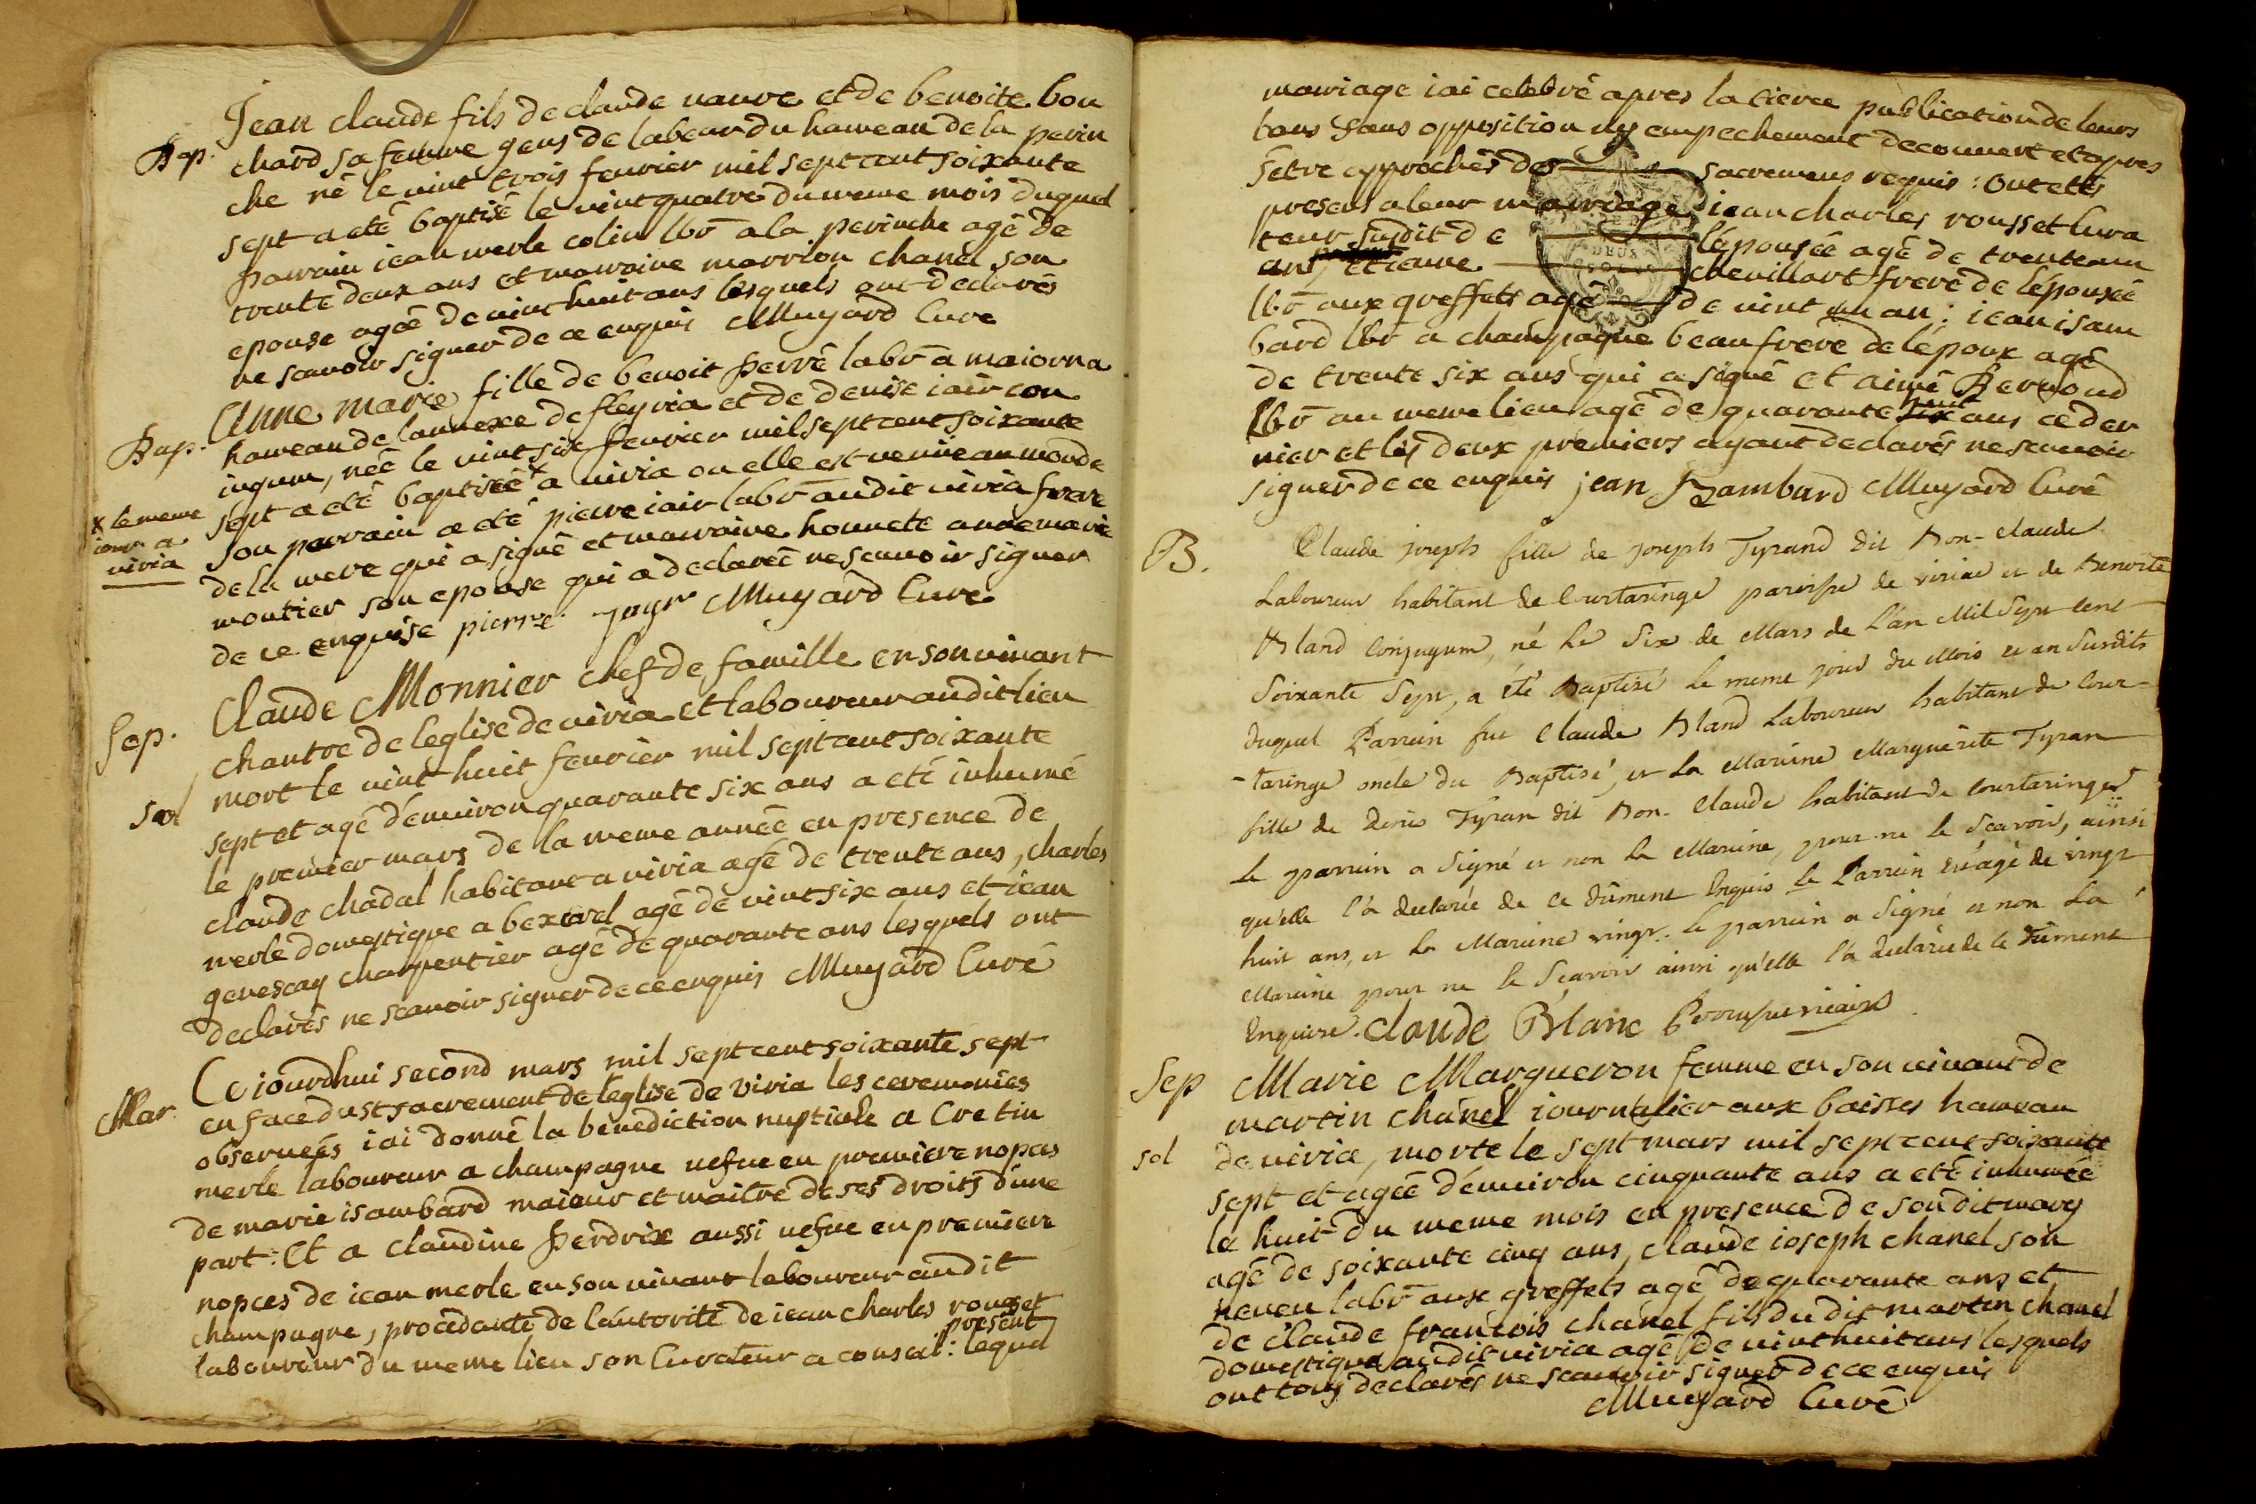 Jean claude fils de claude vauvre et de benoite bou
Bap. chard sa femme gens de labeur du hameau de la perin
che né le vint trois fevrier mil sept cent soixante
sept a eté baptisé le vint quatre du meme mois duquel
parrain jean merle colin lbr a la perinche agé de
trente deux ans et marraine marrion chanel son
epouse agée de vint huit ans lesquels ont declarés
ne scavoir signer de ce enquis Muyard Curé
Anne marie fille de benoit perré labr a maiorna
Bap. hameau de lannexe de fleyria et de denise iair con
iugum, née le vint six fevrier mil sept cent soixante
sept a eté baptisée x a viria ou elle est venüe au monde
x le meme
iour a
viria
son parrain a eté pierre iair labr audit viria frere
de la mere qui a signé et marraine honnete anne marie
moutier son epouse qui a declareé ne scavoir signer
de ce enquise pierre jayr Muyard Curé
Sep. Claude Monnier chef de famille en son vivant
chantre de leglise de viria et laboureur audit lieu
sol mort le vint huit fevrier mil sept cent soixante
sept et agé d'environ quarante six ans a eté inhumé
le premier mars de la meme année en presence de
claude chadal habitant a viria agé de trente ans, charles
merle domestique a bexerel agé de vint six ans et iean
genescay charpentier agé de quarante ans lesquels ont
declarés ne scavoir signer de ce enquis Muyard Curé
Mar. Ce iourdhui second mars mil sept cent soixante sept
en face du st sacrement de leglise de viria les ceremonies
observeés iai donné la benediction nuptiale a Cretin
merle laboureur a champagne vefue en premiere nopces
de marie isambard maieur et maitre de ses droits d'une
part: Et a claudine perdrix aussi vefue en premiere
nopces de iean merle en son vivant laboureur audit
champagne, procedante de l'autorité de iean charles rousset
laboureur du meme lieu son Curateur a conseil: present lequel
mariage iai celebré apres la tierce publication de leurs
bans sans opposition ny empechement decouvert et apres
s'etre approchés des sacremens requis: Ont etés
presens a leur mariage iean charles rousset Cura
teur susdit de l'épousée agé de trente un
ans, etienne chevillart frere de l'épousée
lbr aux greffets agé de vint un an; iean isam
bard lbr a champagne beau frere de l'epoux agé
de trente six ans qui a signé et aimé Bernoud
lbr au meme lieu agé de quarante huit ans ce der
nier et les deux premiers ayant declarés ne scavoir
signer de ce enquis jean Izambard Muyard Curé
B. Claude joseph fille de joseph Tyrand dit Bon-claude
Laboureur habitant de Courtaringe paroisse de viriac et de Benoite
Bland Conjugum, né le Six de Mars de l'an Mil Sept cent
Soixante Sept, a été Baptisé le meme jour du Mois et an Susdits
duquel Parrein fut Claude Bland Laboureur habitant de Cour-
-taringe oncle du Baptisé, et la Mareine Marguerite Tyran
fille de Denis Tyran dit Bon-Claude habitant de Courtaringe
le parrein a Signé et non la Mareine, pour ne le Scavoir, ainsi
qu'elle l'a declarée de ce dûment Enquis le Parrein est agé de vingt
huit ans, et la Mareine vingt. le parrein a Signé et non la
Mareine pour ne le Scavoir ainsi qu'elle l'a declarée de ce dûment
Enquise. Claude Blanc vicaire
Sep Marie Margueron femme en son vivant de
martin chanel iournalier aux baisses hameau
sol de viria, morte le sept mars mil sept cent soixante
sept et agée d'environ cinquante ans a eté inhumée
le huit du meme mois en presence de son dit mary
agé de soixante cinq ans, claude ioseph chanel son
neveu labr aux greffets agé de quarante ans et
de claude francois chanel fils du dit martin chanel
domestique audit viria agé de vint huit ans lesquels
ont tous declarés ne scavoir signer de ce enquis
Muyard Curé